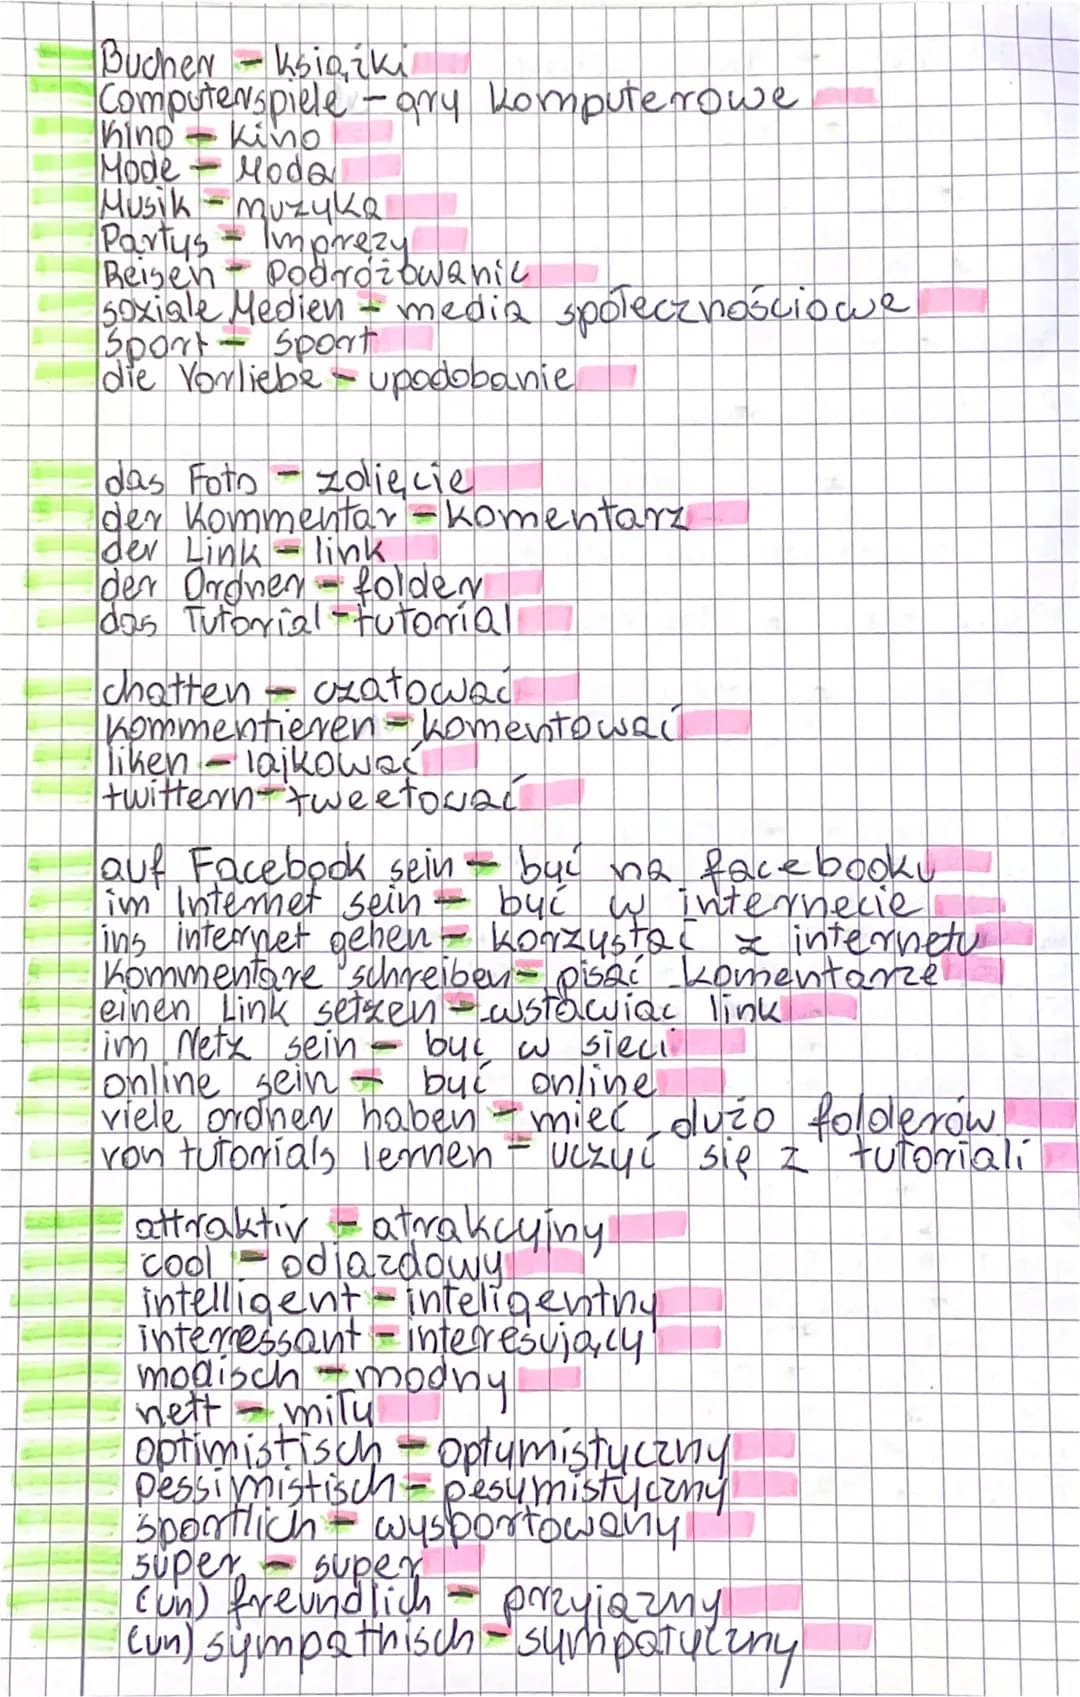 Bucher - książki
Computerspiele - gry komputerowe
Kino - kino
Mode - Moda
Musik - muzyka
Partys - Imprezy
Reisen - Podróżowanie
soziale Medien - media społecznościowe
Sport - Sport
die Vorliebe - upodobanie
das Foto - zdięcie
der Kommentar - komentarz
der Link - link
der Ordner - folder
das Tutorial - tutorial
chatten - czatować
kommentieren - komentować
liken - lajkować
twittern - tweetować
auf Facebook sein - być na facebooku
im Internet sein - być w internecie
ins internet gehen - korzystać z internetu
kommentare schreiben - pisać komentarze
einen Link setzen - wstawiac link
im Netz sein - być w sieci
online sein - być online
viele ordner haben - mieć dużo folderów
von tutorials lernen - uczyć się z tutoriali
attraktiv - atrakcyjny
cool - odjazdowy
intelligent - inteligentny
interressant - interesujący
modisch - modny
nett - miły
optimistisch - optymistyczny
pessimistisch - pesymistyczny
sportlich - wysportowany
super - super
(un) freundlich - przyjazny
(un) sympathisch - sympatyczny